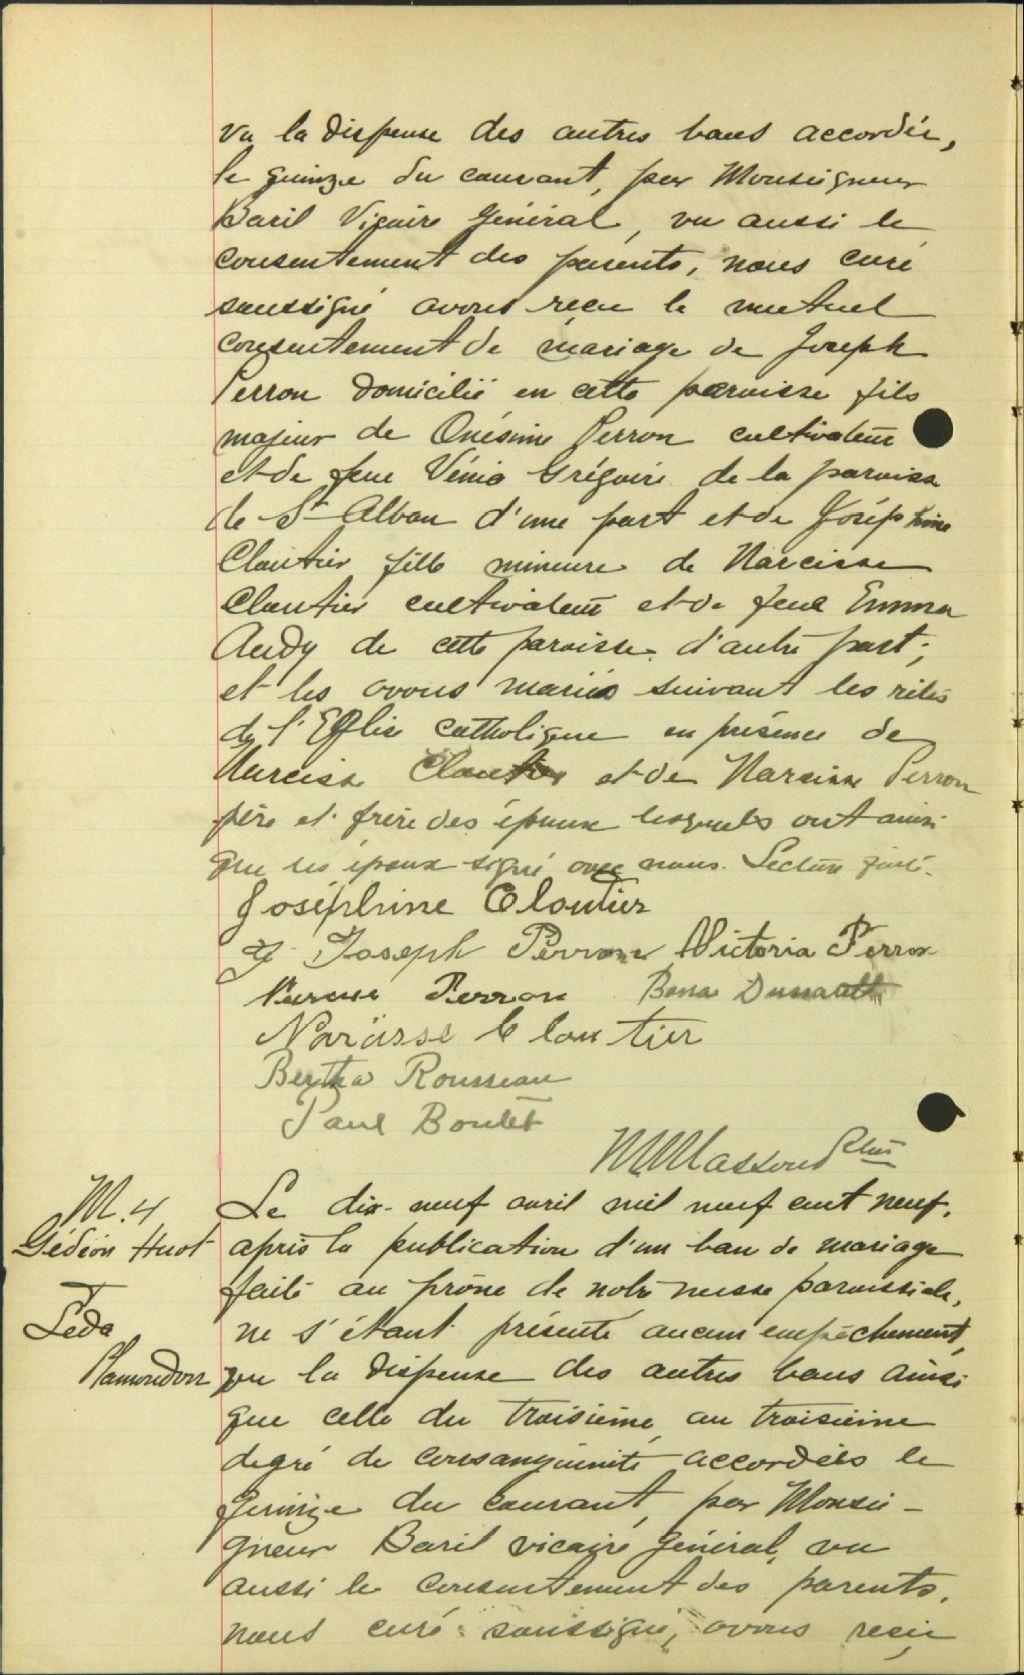 vu la dispense des autres bans accordée,
le quinze du courant, par Monseigneur
Baril Vicaire Général, vu aussi le
consentement des parents, nous curé
soussigné avons reçu le mutuel
consentement de mariage de Joseph
Perron domicilié en cette paroisse fils
majeur de Onésime Perron cultivateur
et de feue Grégoire de la paroisse
de St-Alban d'une part et de Joséphine
Cloutier fille mineure de Narcisse
Cloutier cultivateur et de feue Emma
Audy de cette paroisse d'autre part;
et les avons mariés suivant les rites
de l'Eglise catholique en présence de
Narcisse Cloutier et de Narcisse Perron
père et frère des époux lesquels ont ainsi
que les époux signé avec nous. Lecture faite.
Joséphine Cloutier
Joseph Perron Victoria Perron
Narcisse Perron
Narcisse Cloutier
Bertha Rousseau
Paul Boutet
Masson Ptre
M. 4
Gédéon Huot
Léda
Plamondon
Le dix-neuf avril mil neuf cent neuf,
après la publication d'un ban de mariage
faite au prône de notre messe paroissiale,
ne s'étant présenté aucun empêchement,
vu la dispense des autres bans ainsi
que celle du troisième au troisième
degré de consanguinité accordées le
quinze du courant, par Monsei-
gneur Baril vicaire général, vu
aussi le consentement des parents,
nous curé soussigné, avons reçu